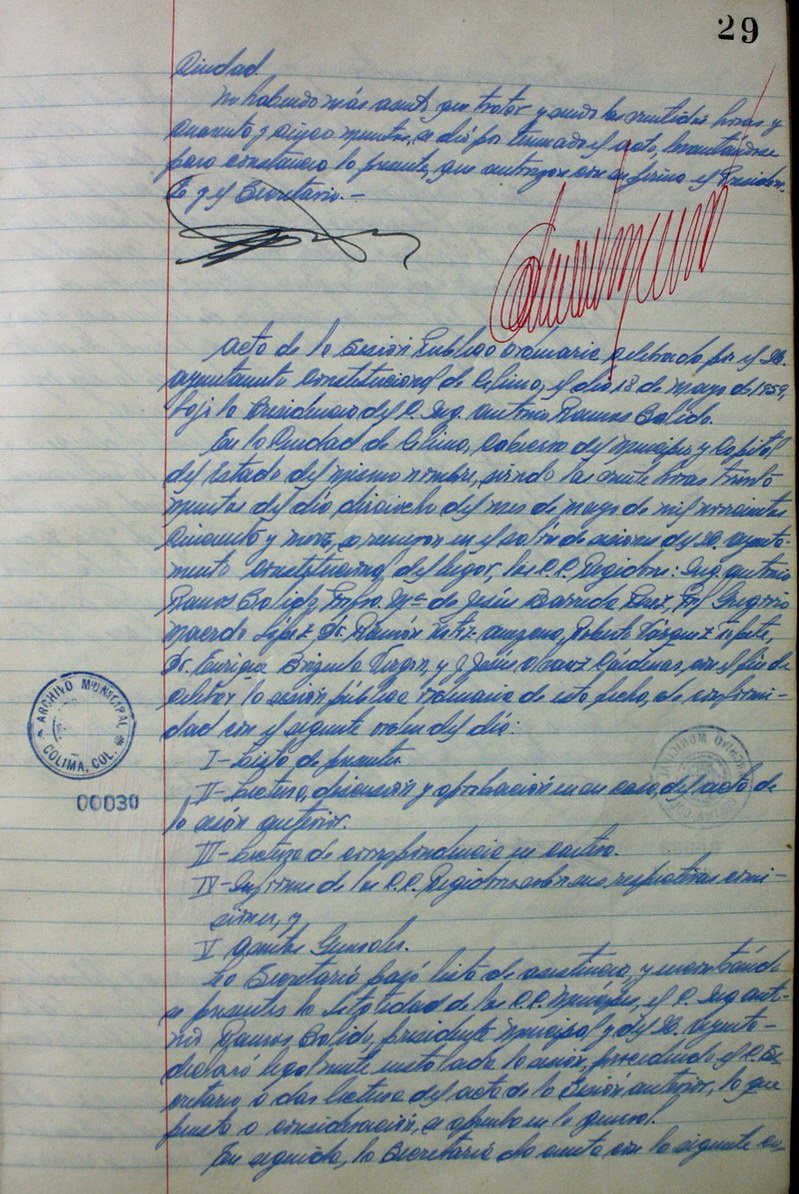 29
Ciudad.
No habiendo más asunto que tratar y siendo las veintidos horas y
cuarenta y cinco minutos, se dió por terminado el acto, levantándose
para constancia la presente, que autorizan con su firma el Presiden-
te y el Secretario.-
Acta de la Sesión Pública Ordinaria, celebrada por el H.
Ayuntamiento Constitucional de Colima, el día 18 de mayo de 1959,
bajo la Presidencia del C. Ing. Antonio Ramos Salido.
En la Ciudad de Colima, Cabecera del Municipio y Capital
del Estado del mismo nombre, siendo las veinte horas treinta
minutos del día dieciocho del mes de mayo de mil novecientos
cincuenta y nueve, se reunieron en el salón de sesiones del H. Ayunta-
miento Constitucional del lugar, los C.C. Regidores: Ing. Antonio
Ramos Salido, Profra. Ma. de Jesús
Macedo López, Dr. Ramón, Roberto Vázquez
Dr. Enrique Brizuela Virgen, y J. Jesús Cárdenas, con el fin de
celebrar la sesión pública ordinaria de esta fecha, de conformi-
dad con el siguiente orden del día:
I- Lista de presentes.
II- Lectura, discusión y aprobación en su caso, del acta de
la sesión anterior.
ARCHIVO MUNICIPAL
COLIMA, COL.
00030
III- Lectura de correspondencia en cartera.
IV- Informe de los C.C. Regidores sobre sus respectivas comi-
siones, y
V Asuntos Generales.
La Secretaría pasó lista de asistencia, y encontrándo-
se presentes la totalidad de los C.C. Munícipes, el C. Ing. Anto-
nio Ramos Salido, presidente Municipal y del H. Ayunta-
declaró legalmente instalada la sesión, procediendo el C. Se-
cretario a dar lectura del acta de la Sesión anterior, la que
puesta a consideración, se aprueba en lo general.
En seguida, la Secretaría da cuenta con la siguiente co